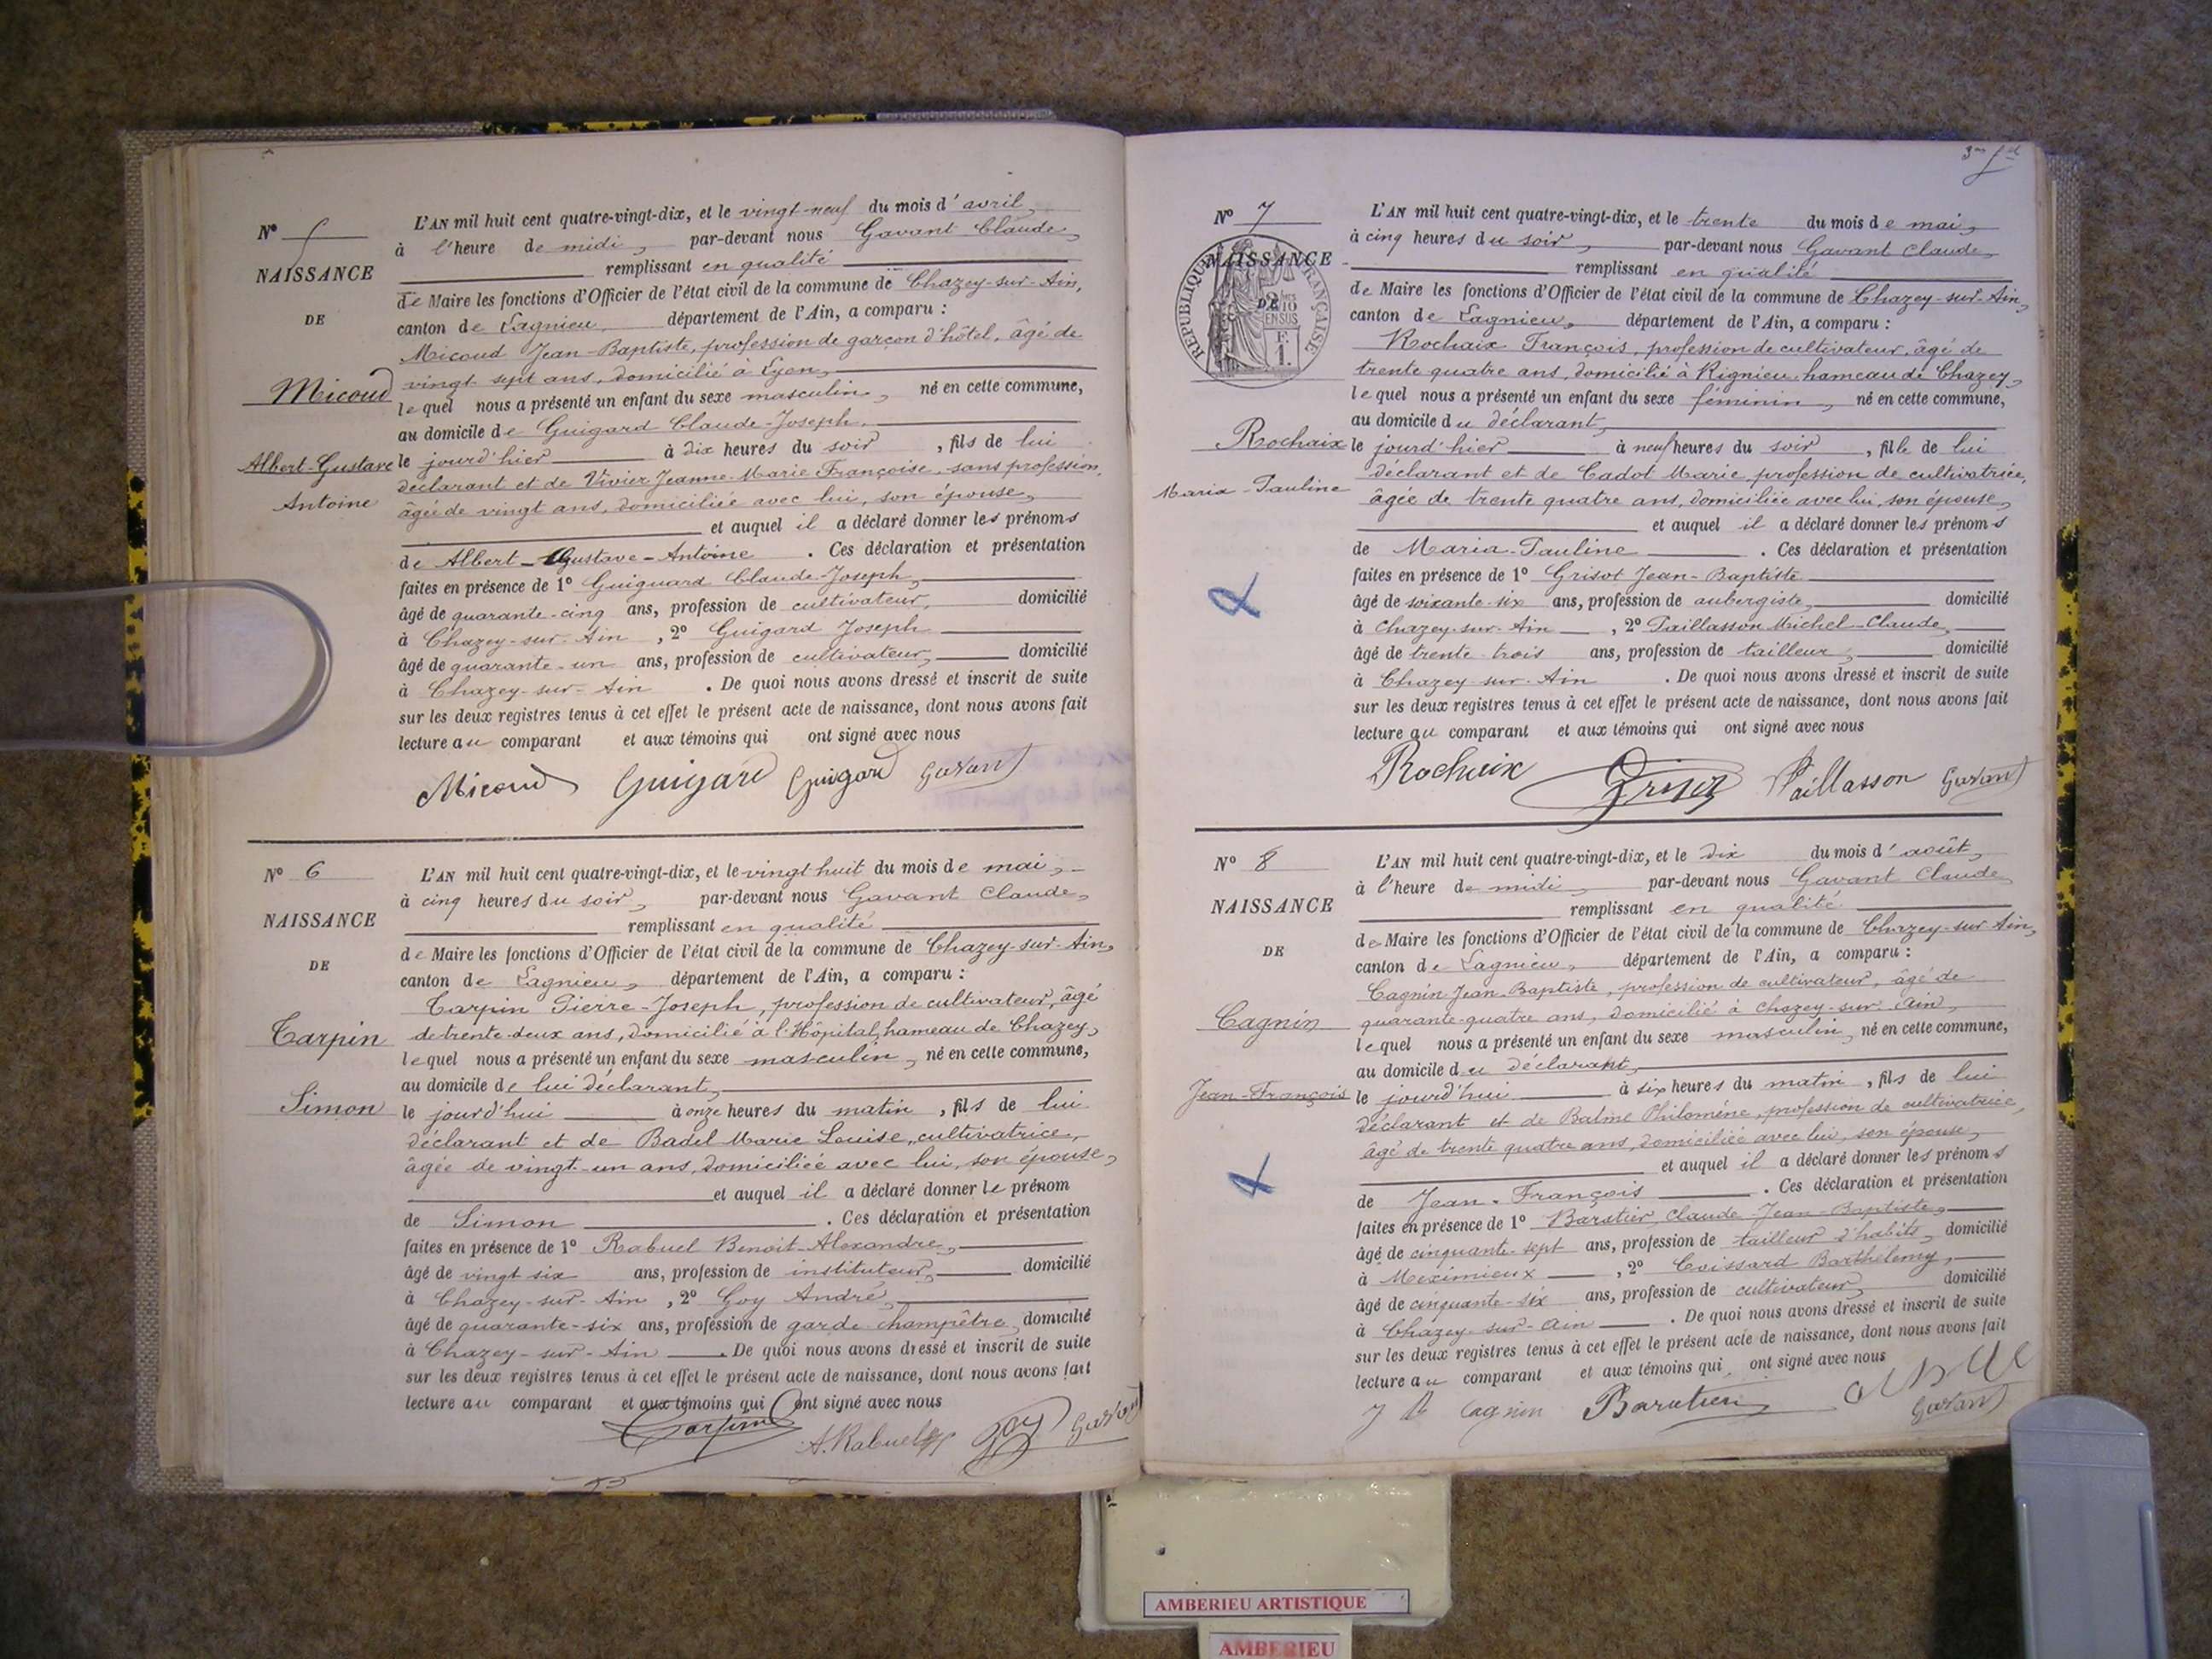 Nº 5
NAISSANCE
DE
Micoud
Albert-Gustave
Antoine
L'AN mil huit cent quatre-vingt-dix, et le vingt-neuf du mois d'avril,
à l'heure de midi, par-devant nous Gavant Claude,
remplissant en qualité
de Maire les fonctions d'Officier de l'état civil de la commune de Chazey-sur-Ain,
canton de Lagnieu, département de l'Ain, a comparu :
Micoud Jean-Baptiste, profession de garçon d'hôtel, âgé de
vingt sept ans, domicilié à Lyon,
lequel nous a présenté un enfant du sexe masculin, né en cette commune,
au domicile de Guigard Claude-Joseph,
le jourd'hier à dix heures du soir, fils de lui
déclarant et de Vivier Jeanne-Marie Françoise, sans profession,
âgée de vingt ans, domiciliée avec lui, son épouse,
et auquel il a déclaré donner les prénoms
de Albert-Gustave-Antoine. Ces déclaration et présentation
faites en présence de 1º Guiguard Claude-Joseph,
âgé de quarante-cinq ans, profession de cultivateur, domicilié
à Chazey-sur-Ain, 2º Guigard Joseph
âgé de quarante-un ans, profession de cultivateur, domicilié
à Chazey-sur-Ain. De quoi nous avons dressé et inscrit de suite
sur les deux registres tenus à cet effet le présent acte de naissance, dont nous avons fait
lecture au comparant et aux témoins qui ont signé avec nous
Micoud Guigard Guigard Gavant
Nº 6
NAISSANCE
DE
Carpin
Simon
L'AN mil huit cent quatre-vingt-dix, et le vingt huit du mois de mai,
à cinq heures du soir, par-devant nous Gavant Claude,
remplissant en qualité
de Maire les fonctions d'Officier de l'état civil de la commune de Chazey-sur-Ain,
canton de Lagnieu, département de l'Ain, a comparu :
Carpin Pierre-Joseph, profession de cultivateur, âgé
de trente-deux ans, domicilié à l'Hôpital, hameau de Chazey,
lequel nous a présenté un enfant du sexe masculin, né en cette commune,
au domicile de lui déclarant,
le jourd'hui à onze heures du matin, fils de lui
déclarant et de Badel Marie Louise, cultivatrice,
âgée de vingt-un ans, domiciliée avec lui, son épouse,
et auquel il a déclaré donner le prénom
de Simon. Ces déclaration et présentation
faites en présence de 1º Rabuel Benoit-Alexandre,
âgé de vingt six ans, profession de instituteur, domicilié
à Chazey-sur-Ain, 2º Goy André,
âgé de quarante-six ans, profession de garde champêtre, domicilié
à Chazey-sur-Ain. De quoi nous avons dressé et inscrit de suite
sur les deux registres tenus à cet effet le présent acte de naissance, dont nous avons fait
lecture au comparant et aux témoins qui ont signé avec nous
Carpin A. Rabuel Goy Gavant
Nº 7
NAISSANCE
DE
RÉPUBLIQUE FRANÇAISE
2/10 EN SUS
Rochaix
Maria-Pauline
L'AN mil huit cent quatre-vingt-dix, et le trente du mois de mai,
à cinq heures du soir, par-devant nous Gavant Claude,
remplissant en qualité
de Maire les fonctions d'Officier de l'état civil de la commune de Chazey-sur-Ain,
canton de Lagnieu, département de l'Ain, a comparu :
Rochaix François, profession de cultivateur, âgé de
trente quatre ans, domicilié à Rignieu, hameau de Chazey,
lequel nous a présenté un enfant du sexe féminin, né en cette commune,
au domicile du déclarant,
le jourd'hier à neuf heures du soir, fille de lui
déclarant et de Cadot Marie, profession de cultivatrice,
âgée de trente quatre ans, domiciliée avec lui, son épouse,
et auquel il a déclaré donner les prénoms
de Maria-Pauline. Ces déclaration et présentation
faites en présence de 1º Grisot Jean-Baptiste
âgé de soixante-six ans, profession de aubergiste, domicilié
à Chazey-sur-Ain, 2º Paillasson Michel-Claude,
âgé de trente-trois ans, profession de tailleur, domicilié
à Chazey-sur-Ain. De quoi nous avons dressé et inscrit de suite
sur les deux registres tenus à cet effet le présent acte de naissance, dont nous avons fait
lecture au comparant et aux témoins qui ont signé avec nous
Rochaix Grisot Paillasson Gavant
Nº 8
NAISSANCE
DE
Cagnin
Jean-François
L'AN mil huit cent quatre-vingt-dix, et le dix du mois d'août,
à l'heure de midi, par-devant nous Gavant Claude
remplissant en qualité
de Maire les fonctions d'Officier de l'état civil de la commune de Chazey-sur-Ain,
canton de Lagnieu, département de l'Ain, a comparu :
Cagnin Jean-Baptiste, profession de cultivateur, âgé de
quarante-quatre ans, domicilié à Chazey-sur-Ain,
lequel nous a présenté un enfant du sexe masculin, né en cette commune,
au domicile du déclarant,
le jourd'hui à six heures du matin, fils de lui
déclarant et de Balme Philomène, profession de cultivatrice,
âgé de trente quatre ans, domiciliée avec lui, son épouse,
et auquel il a déclaré donner les prénoms
de Jean-François. Ces déclaration et présentation
faites en présence de 1º Baratier Claude Jean-Baptiste,
âgé de cinquante-sept ans, profession de tailleur d'habits, domicilié
à Meximieux, 2º Coissard Barthélemy,
âgé de cinquante-six ans, profession de cultivateur, domicilié
à Chazey-sur-Ain. De quoi nous avons dressé et inscrit de suite
sur les deux registres tenus à cet effet le présent acte de naissance, dont nous avons fait
lecture au comparant et aux témoins qui ont signé avec nous
J B Cagnin Baratier Gavant
AMBERIEU ARTISTIQUE
AMBERIEU